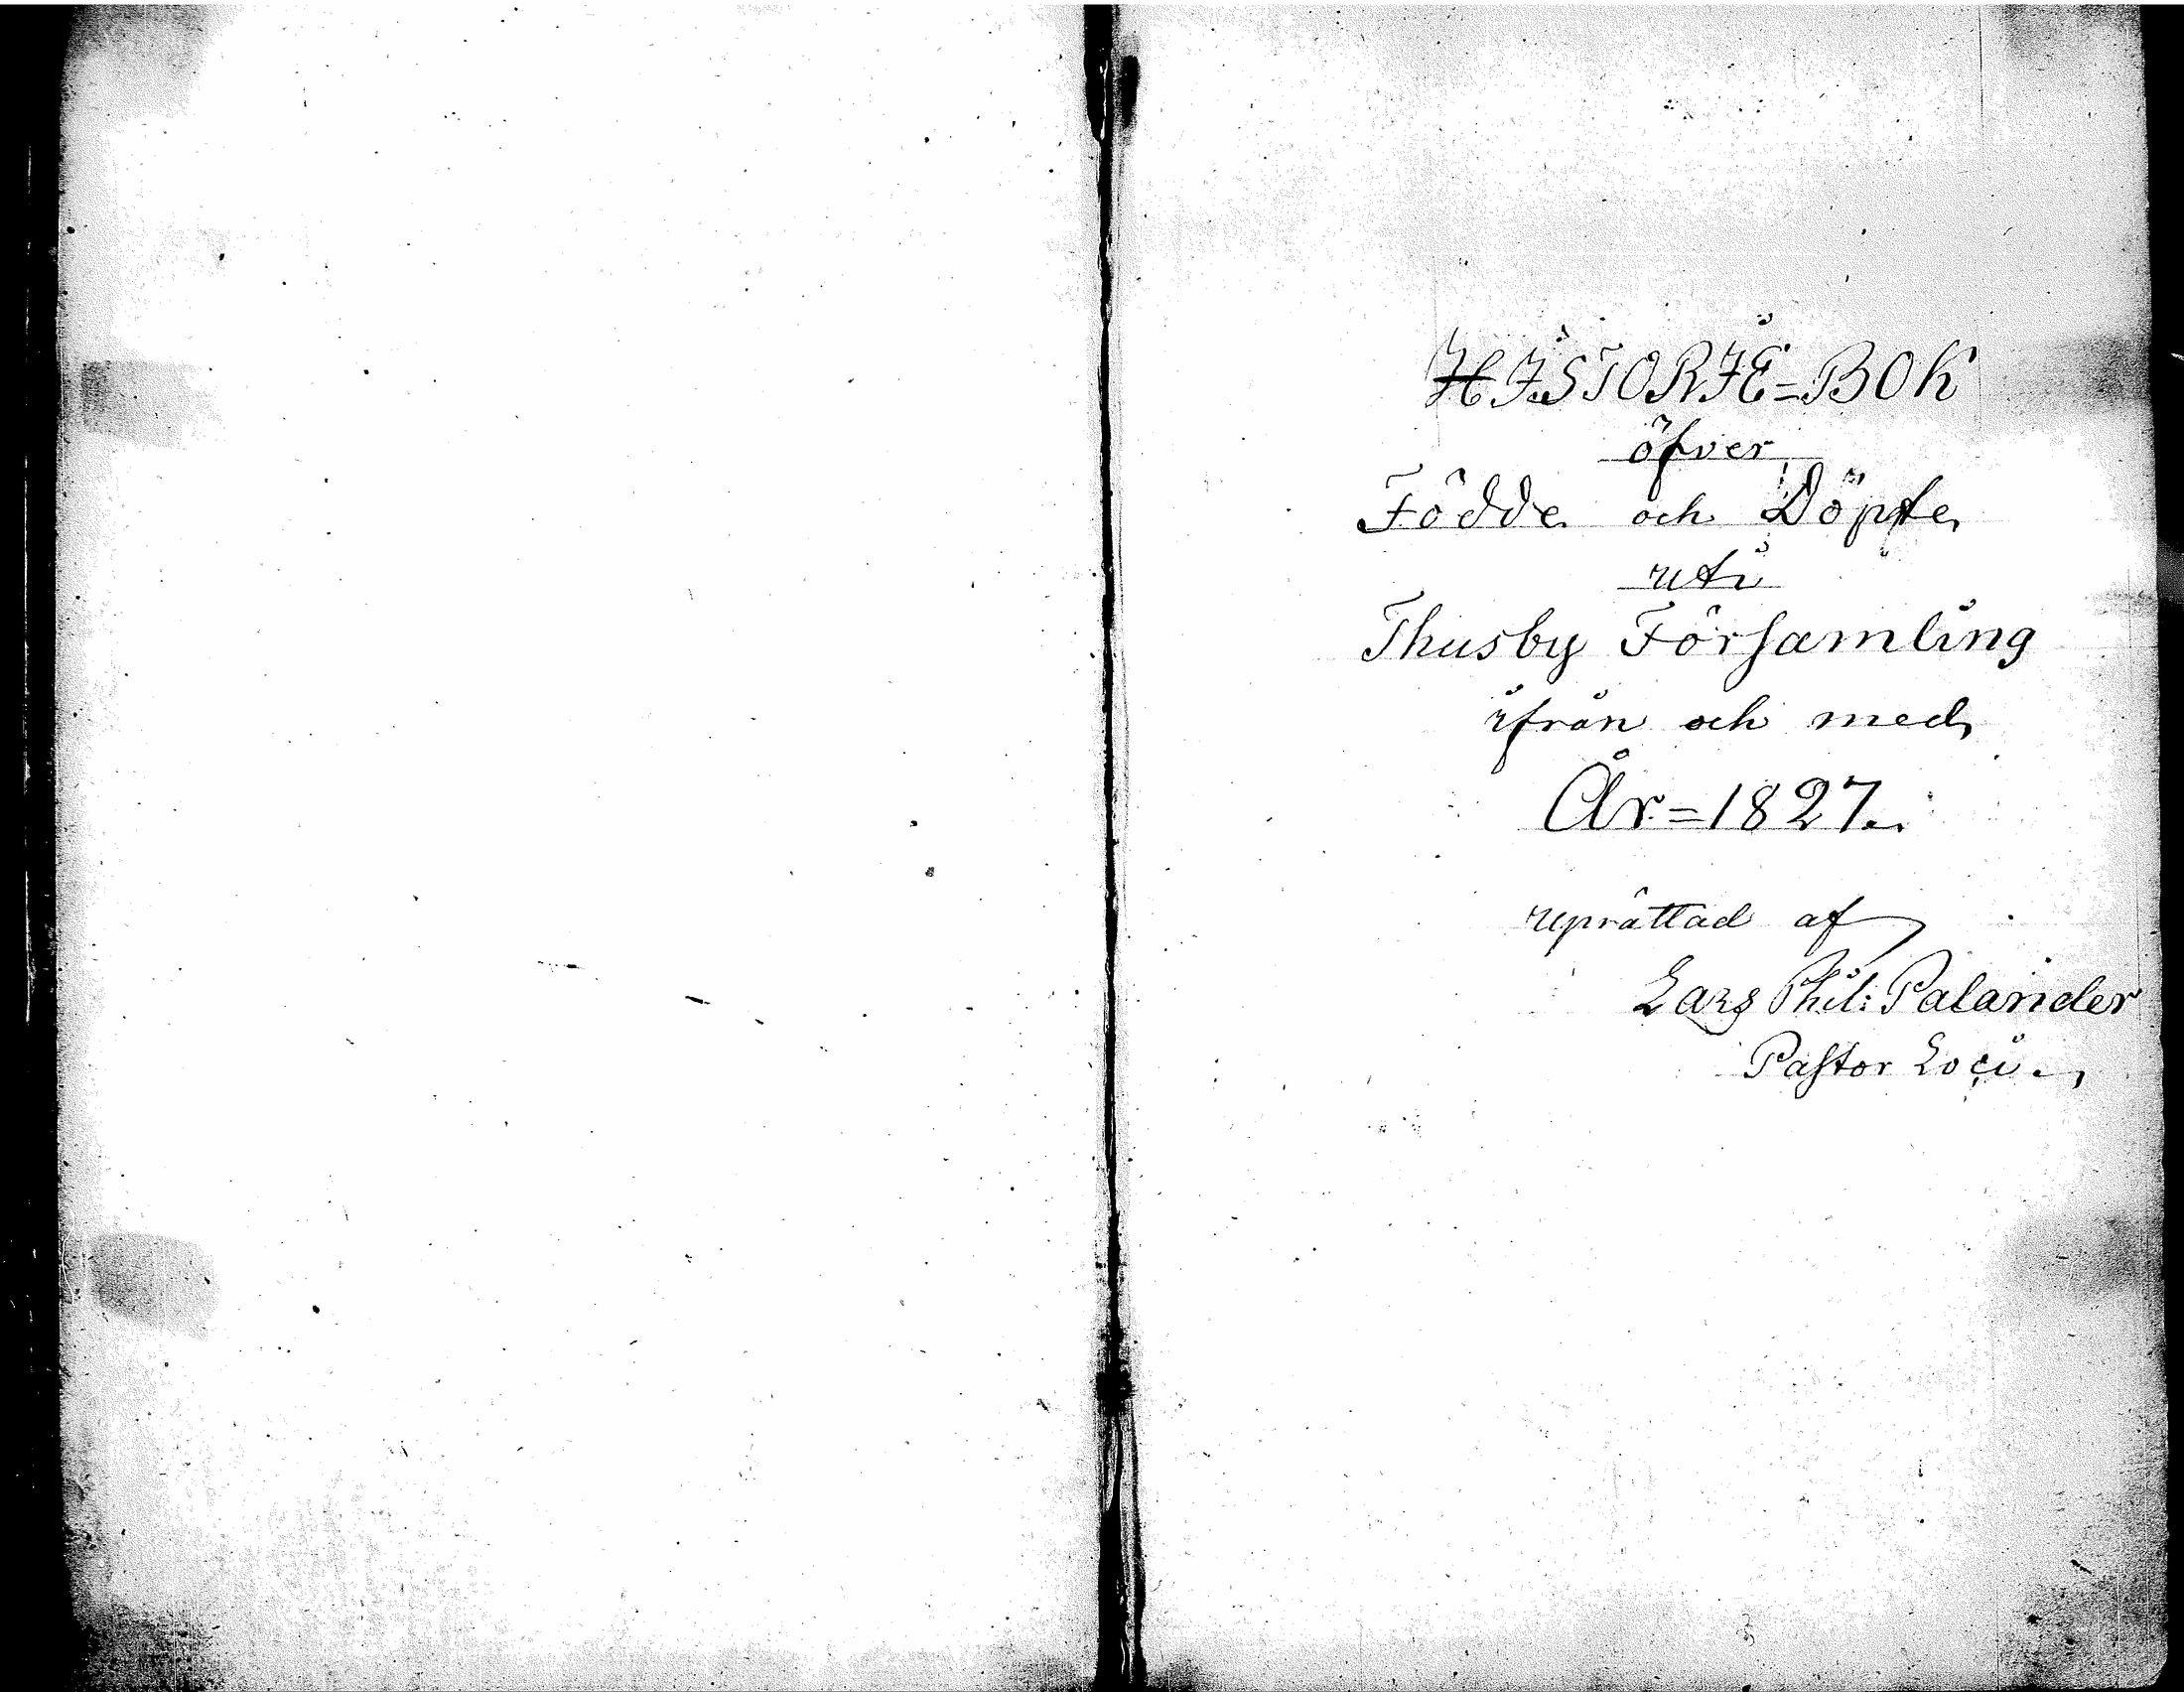 HISTORIE=BOK
öfver
Födde och Döpte
uti
Thusby Församling
ifrån och med
År=1827.
uprättad af
Lars Phil: Palander
Pastor Loci.